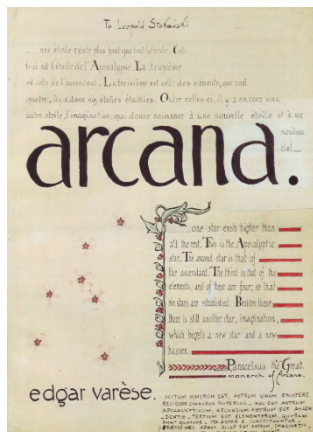 To Leopold Stokowski
une étoile existe plus haut que tout le reste. Cel
le ci est l'étoile de l'Apocalypse. La deuxième
est celle de l'ascendant. La troisième est celle des elements, qui sont
quatre; il y a donc six étoiles établies. Outre celles-ci, il y a encore une
autre étoile, l'imagination, qui donne naissance à une nouvelle étoile et à un
nouveau
ciel
arcana.
one star exists higher than
all the rest. This is the Apocalyptic
star. The second star is that of
the ascendant. The third is that of the
elements, and of these are four; so that
six stars are established. Besides these
there is still another star, imagination,
which begets a new star and a new
heaven.
Paracelsus the Great.
monarch of Arcana.
edgar varèse.